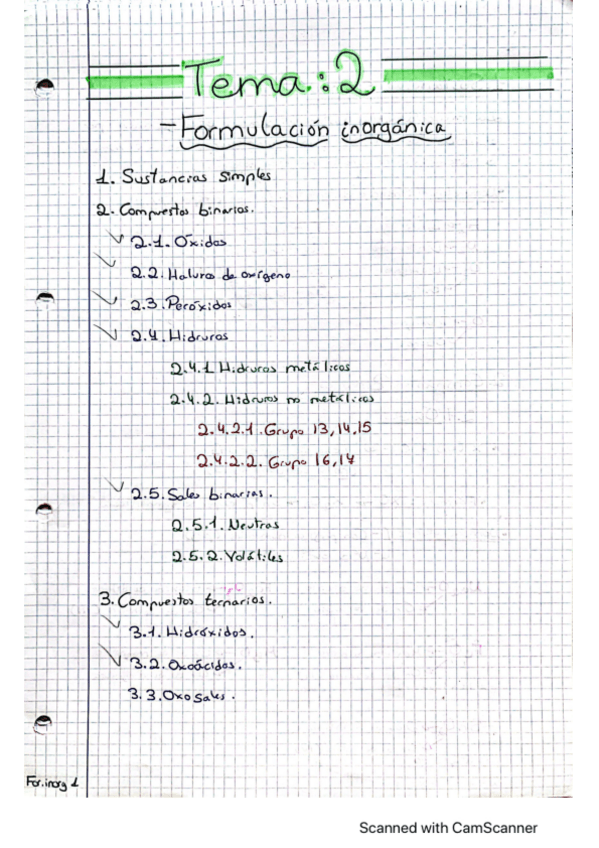 Tema: 2
- Formulación inorgánica
1. Sustancias simples
2. Compuestos binarios.
2.1. Óxidos
2.2. Haluros de oxígeno
2.3. Peróxidos
2.4. Hidruros
2.4.1 Hidruros metálicos
2.4.2. Hidruros no metálicos
2.4.2.1. Grupo 13, 14, 15
2.4.2.2. Grupo 16, 17
2.5. Sales binarias.
2.5.1. Neutras
2.5.2. Volátiles
3. Compuestos ternarios.
3.1. Hidróxidos.
3.2. Oxoácidos.
3.3. Oxosales.
For.inorg 1
Scanned with CamScanner